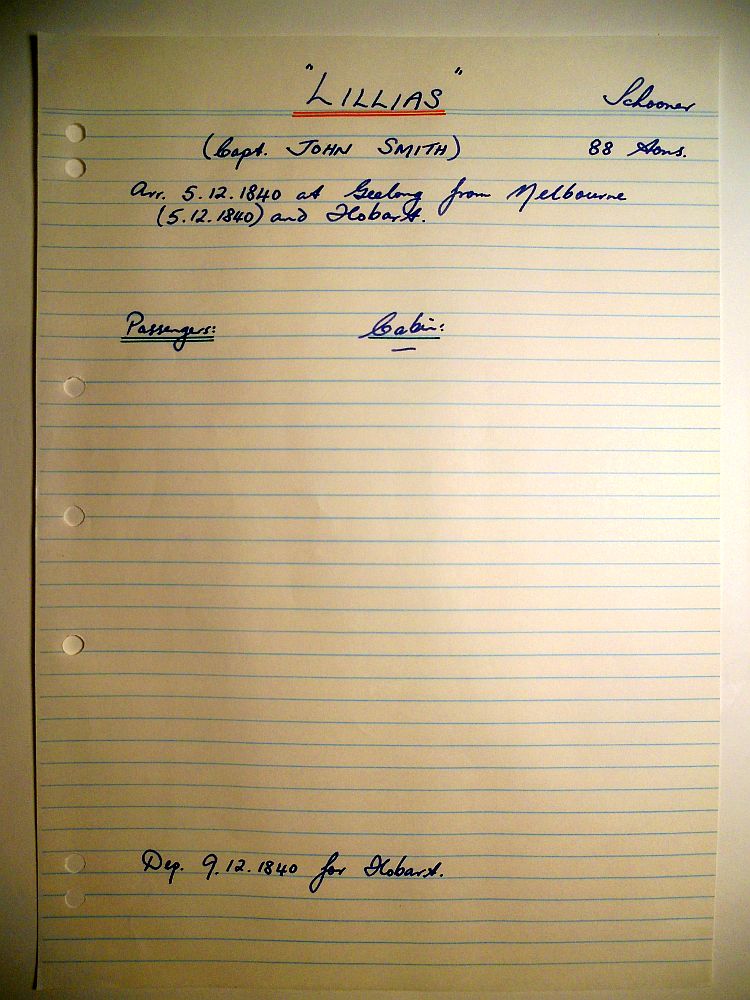 "LILLIAS"
Schooner
(Capt. JOHN SMITH)
88 tons.
Arr. 5.12.1840 at Geelong from Melbourne
(5.12.1840) and Hobart.
Passengers:
Cabin:
—
Dep. 9.12.1840 for Hobart.